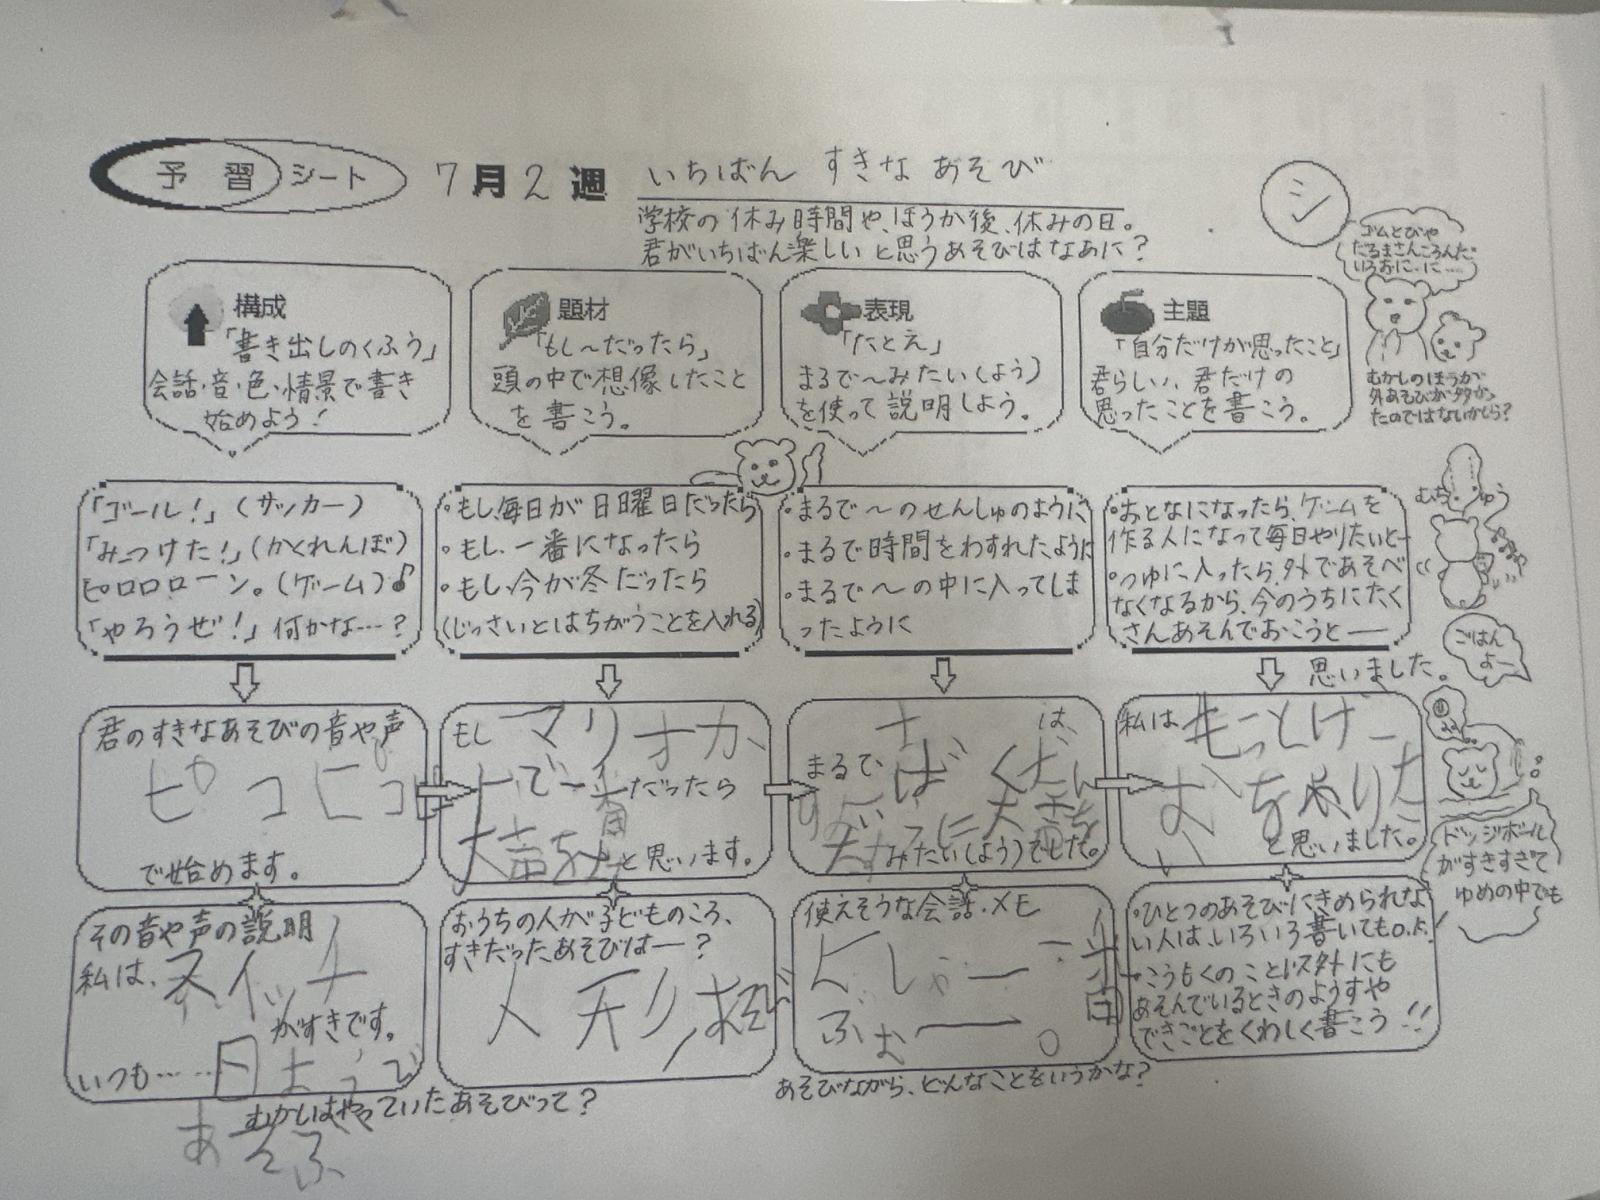 予習シート 7月2週 いちばん すきな あそび
シ
学校の休み時間や、ほうか後、休みの日。
君がいちばん楽しいと思うあそびはなあに?
ゴムとびや
だるまさんころんだ
いろおに…に……
むかしのほうが
外あそびが多かっ
たのではないかしら?
構成
「書き出しのくふう」
会話・音・色・情景で書き
始めよう!
題材
「もし〜だったら」
頭の中で想像したこと
を書こう。
表現
「たとえ」
まるで〜みたい(よう)
を使って説明しよう。
主題
「自分だけが思ったこと」
君らしい、君だけの
思ったことを書こう。
「ゴール!」(サッカー)
「みつけた!」(かくれんぼ)
ピロロローン。(ゲーム)♪
「やろうぜ!」何かな…?
・もし、毎日が日曜日だったら
・もし、一番になったら
・もし、今が冬だったら
(じっさいとはちがうことを入れる)
・まるで〜のせんしゅのように
・まるで時間をわすれたように
・まるで〜の中に入ってしま
ったように
・おとなになったら、ゲームを
作る人になって毎日やりたいと―
・つゆに入ったら、外であそべ
なくなるから、今のうちにたく
さんあそんでおこうと――
思いました。
むちゅう
ごはん
よー
君のすきなあそびの音や声
ピコピコ
で始めます。
もしマリオカ
ートで一番だったら
と思います。
まるで
みたい(よう)でした。
私はもっとげー
むをやりた
い
と思いました。
ドッジボール
がすきすぎて
ゆめの中でも
その音や声の説明
私は、スイッチ
がすきです。
いつも……日ようび
あそぶ
おうちの人が子どものころ、
すきだったあそびは―?
人形
むかしはやっていたあそびって?
使えそうな会話・メモ
あそびながら、どんなことをいうかな?
・ひとつのあそびにきめられな
い人は、いろいろ書いてもO.K.
・こうもくのこと以外にも
あそんでいるときのようすや
できごとをくわしく書こう!!